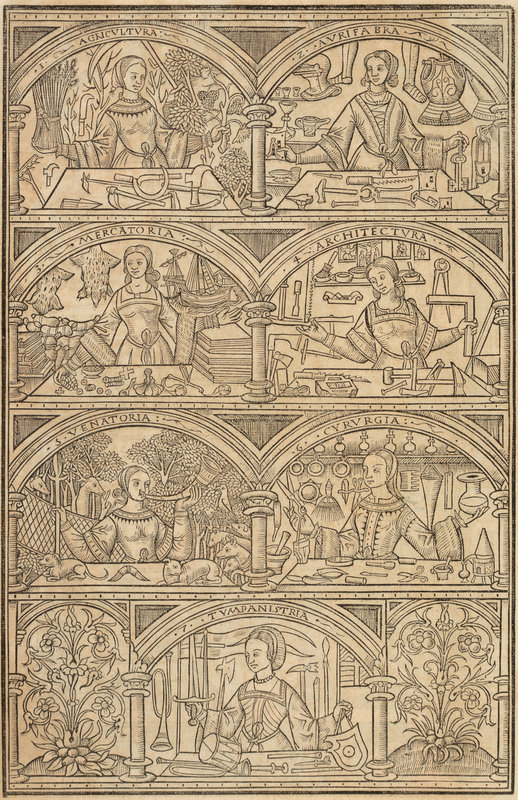 1. AGRICVLTVRA
2. AVRIFABRA
3. MERCATORIA
4. ARCHITECTVRA
5. VENATORIA
6. CYRVRGIA
7. TYMPANISTRIA